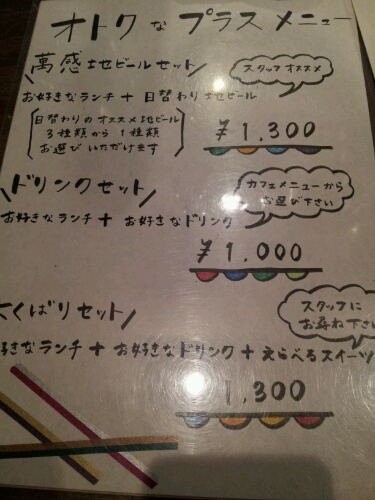 オトクなプラスメニュー
萬感地ビールセット
スタッフオススメ
お好きなランチ + 日替わり地ビール
日替わりのオススメ地ビール
3種類から1種類
お選びいただけます
¥1,300
ドリンクセット
カフェメニューから
お選び下さい
お好きなランチ + お好きなドリンク
¥1,000
くばりセット
スタッフに
お尋ね下さい
好きなランチ + お好きなドリンク + えらべるスイーツ
1,300